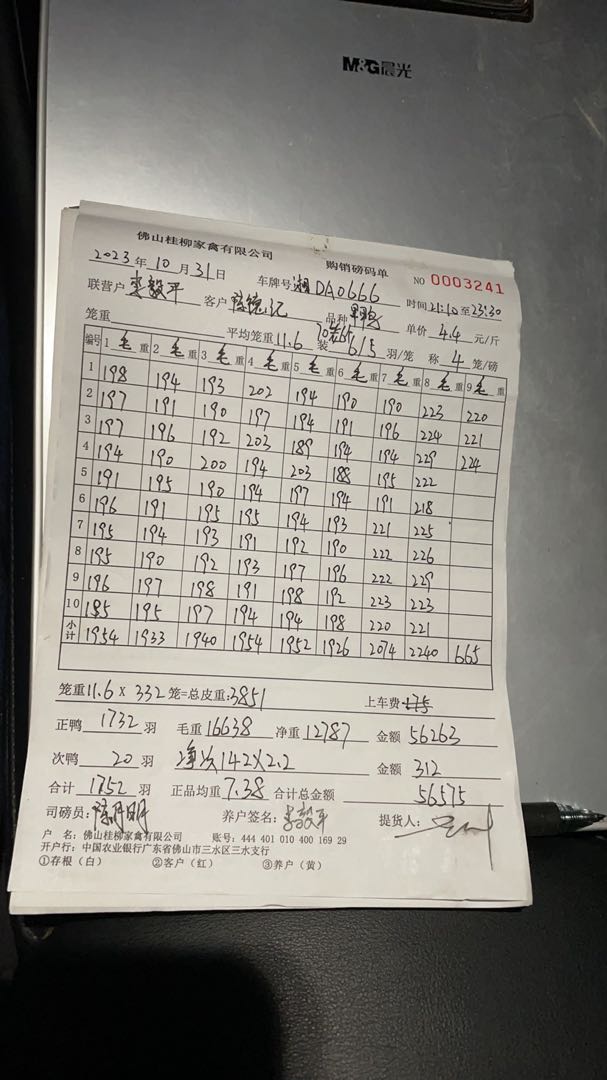 M&G晨光
佛山桂柳家禽有限公司 购销磅码单 NO 0003241
2023年10月31日 车牌号湘DA0666 时间21:10至23:30
联营户李毅平 客户 品种 单价4.4元/斤
笼重 平均笼重11.6 装6/5羽/笼 称4笼/磅
编号 1毛重 2毛重 3毛重 4毛重 5毛重 6毛重 7毛重 8毛重 9毛重
1 198 194 193 202 194 190 190 223 220
2 197 191 190 197 194 191 196 224 221
3 197 196 192 203 189 194 194 229 224
4 194 190 200 194 203 188 195 222
5 191 195 190 194 197 194 191 218
6 196 191 195 195 194 193 221 225
7 195 194 193 191 192 190 222 226
8 195 190 192 193 197 196 222 229
9 196 197 198 191 198 192 223 223
10 195 195 197 194 194 198 220 221
小计 1954 1933 1940 1954 1952 1926 2074 2240 665
笼重11.6×332笼=总皮重:3851 上车费175
正鸭1732羽 毛重16638 净重12787 金额56263
次鸭20羽 净次142×2.2 金额312
合计1752羽 正品均重7.38 合计总金额56575
司磅员: 养户签名:李毅平 提货人:
户 名:佛山桂柳家禽有限公司 账号:444 401 010 400 169 29
开户行:中国农业银行广东省佛山市三水区三水支行
①存根(白) ②客户(红) ③养户(黄)